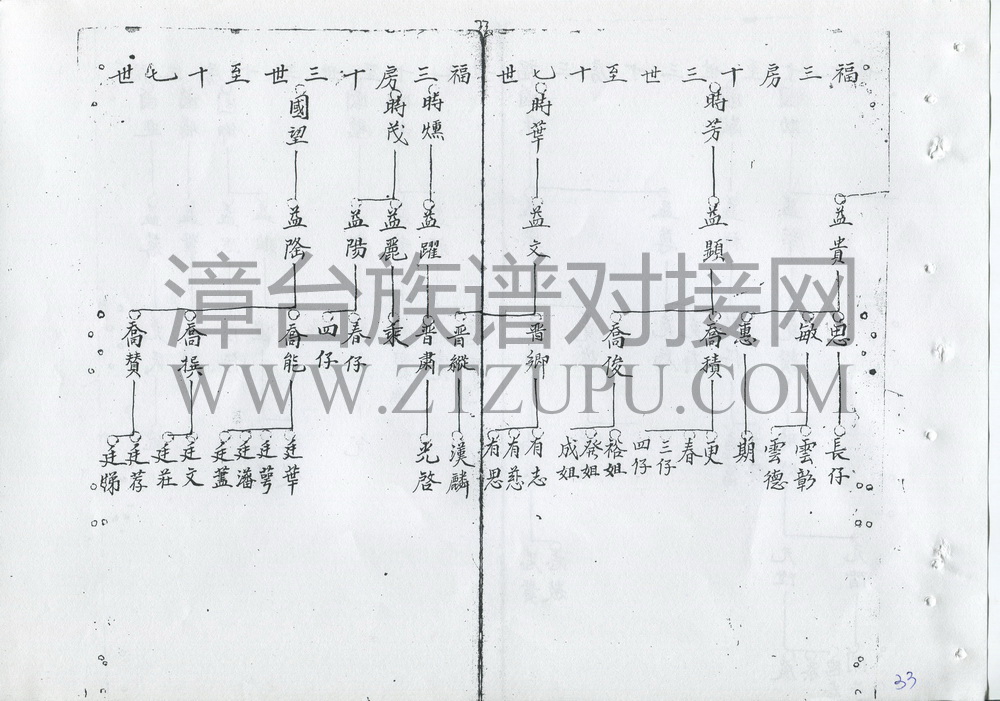 33
福三房十三世至十七世
時芳
時華
益貴
益顯
益文
思
敏
惠
喬積
喬俊
晋卿
晋縱
長仔
雲彰
雲德
期
更
春
三仔
四仔
裕姐
發姐
成姐
有志
有慈
有思
漢麟
福三房十三世至十七世
時燻
時茂
國望
益躍
益麗
益陽
益隆
晋肅
乘
春仔
四仔
喬能
喬撰
喬贊
光啓
廷華
廷萼
廷藩
廷蓋
廷文
廷莊
廷荐
廷娣
漳台族谱对接网
WWW.ZTZUPU.COM
33